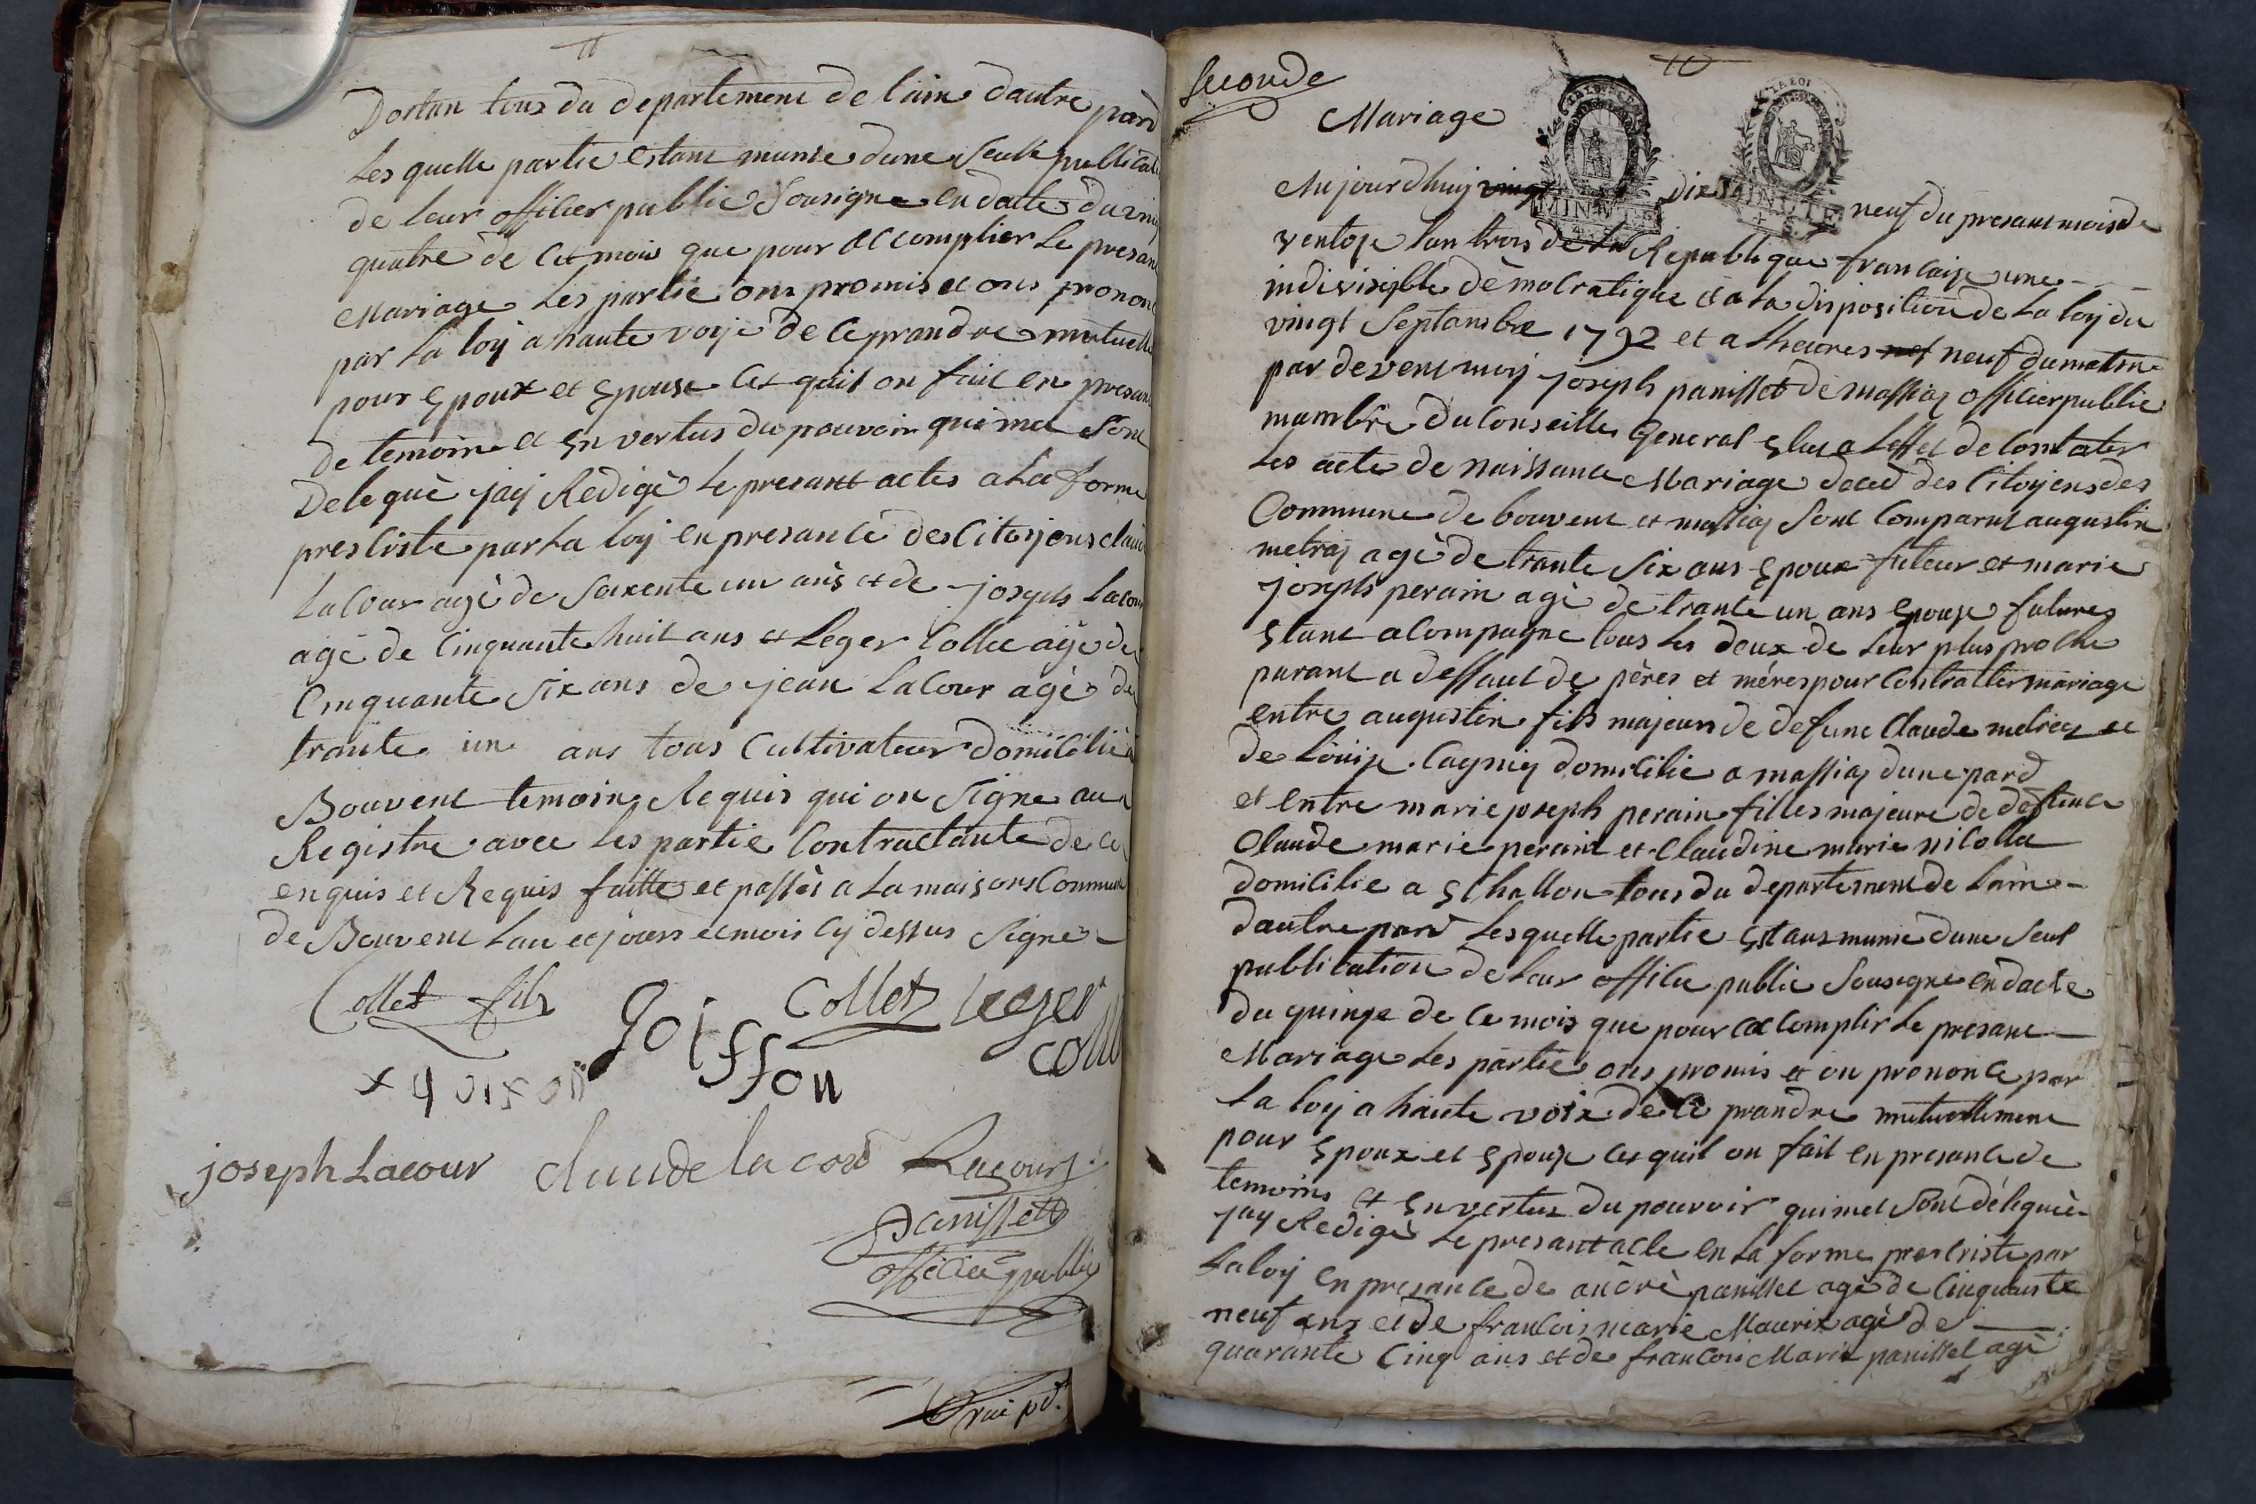 Dortan tous du departement de lain dautre pard
Les quelle partie estant munie dune Seulle publicat
de leur officier public Sousigne en datte du vin
quatre de cet mois que pour accomplier Le presan
Mariage Les partie ons promis et ons prononc
par La loy a haute voije de ce prandre mutuelle
pour Epoux et Epouse Ces quil on fait en presan
de temoins et En vertus du pouvoir qui met Sont
Delequé jay Redigé Le presant actes a La forme
prescriste par La loy en presance des Citoijens claud
Lacour agé de Soixente un ans et de joseph Lacou
agé de Cinquante huit ans et Leger Collet agé de
Cinquante Six ans de jean Lacour agé de
trante un ans tous Cultivateur domicilié a
Bouvent temoins Requis qui on Signe au
Registre avec Les partie Contractante de ce
enquis et Requis faitte et passés a La maisons Commune
de Bouvent Lan et jours et mois Cy dessus Signe
Collet fils
Goiffon
Collet
Leger
Coll
joseph Lacour
claude lacour
Lacour
Panisset
officier public
Seconde
Mariage
LA LOI
MINUTE
MINUTE
Aujourdhuij vingt dix neuf du presant mois de
ventose Lan trois de La Republique francaise une
indivisible démocratique et a La disposition de La loy du
vingt Septambre 1792 et a Lheures nef neuf du matin
par devent moy joseph panisset de massiaj officier public
mambre du Conseille General Elus a Leffet de Constater
Les acte de naissance Mariage deced des Citoijens des
Commune de bouvent et massiaj Sont Comparut augustin
metraj agé de trante Six ans Epoux futeur et marie
joseph perain agé de trante un ans Epouse futures
Etant acompagne tous Les deux de Leur plus proche
parant a deffaut de péres et méres pour Contratter mariage
entre augustin fils majeurs de defunt Claude metraj et
de Louise Cagnij domicilie a massiaj dune pard
et entre marie joseph perain filles majeure de defeunt
Claude marie perain et Claudine marie nicollet
domicilie a Echallon tous du departement de Lain
dautre pard Lesquelle partie Estans munie dune Seul
publication de Leur office public Sousigne en dacte
du quinze de ce mois que pour accomplir Le presant
Mariage Les partie ons promis et on prononce par
La loy a haute voix de ce prandre mutuellement
pour Epoux et Epouse Ces quil on fait en presance de
temoins et En vertus du pouvoir qui met Sont délequée
jay Redigé Le presant acte en La forme prescriste par
La loy en presance de andré panisset agé de Cinquante
neuf ans et de francois marie Maurix agé de
quarante Cinq ans et de francois Marie panisset agé